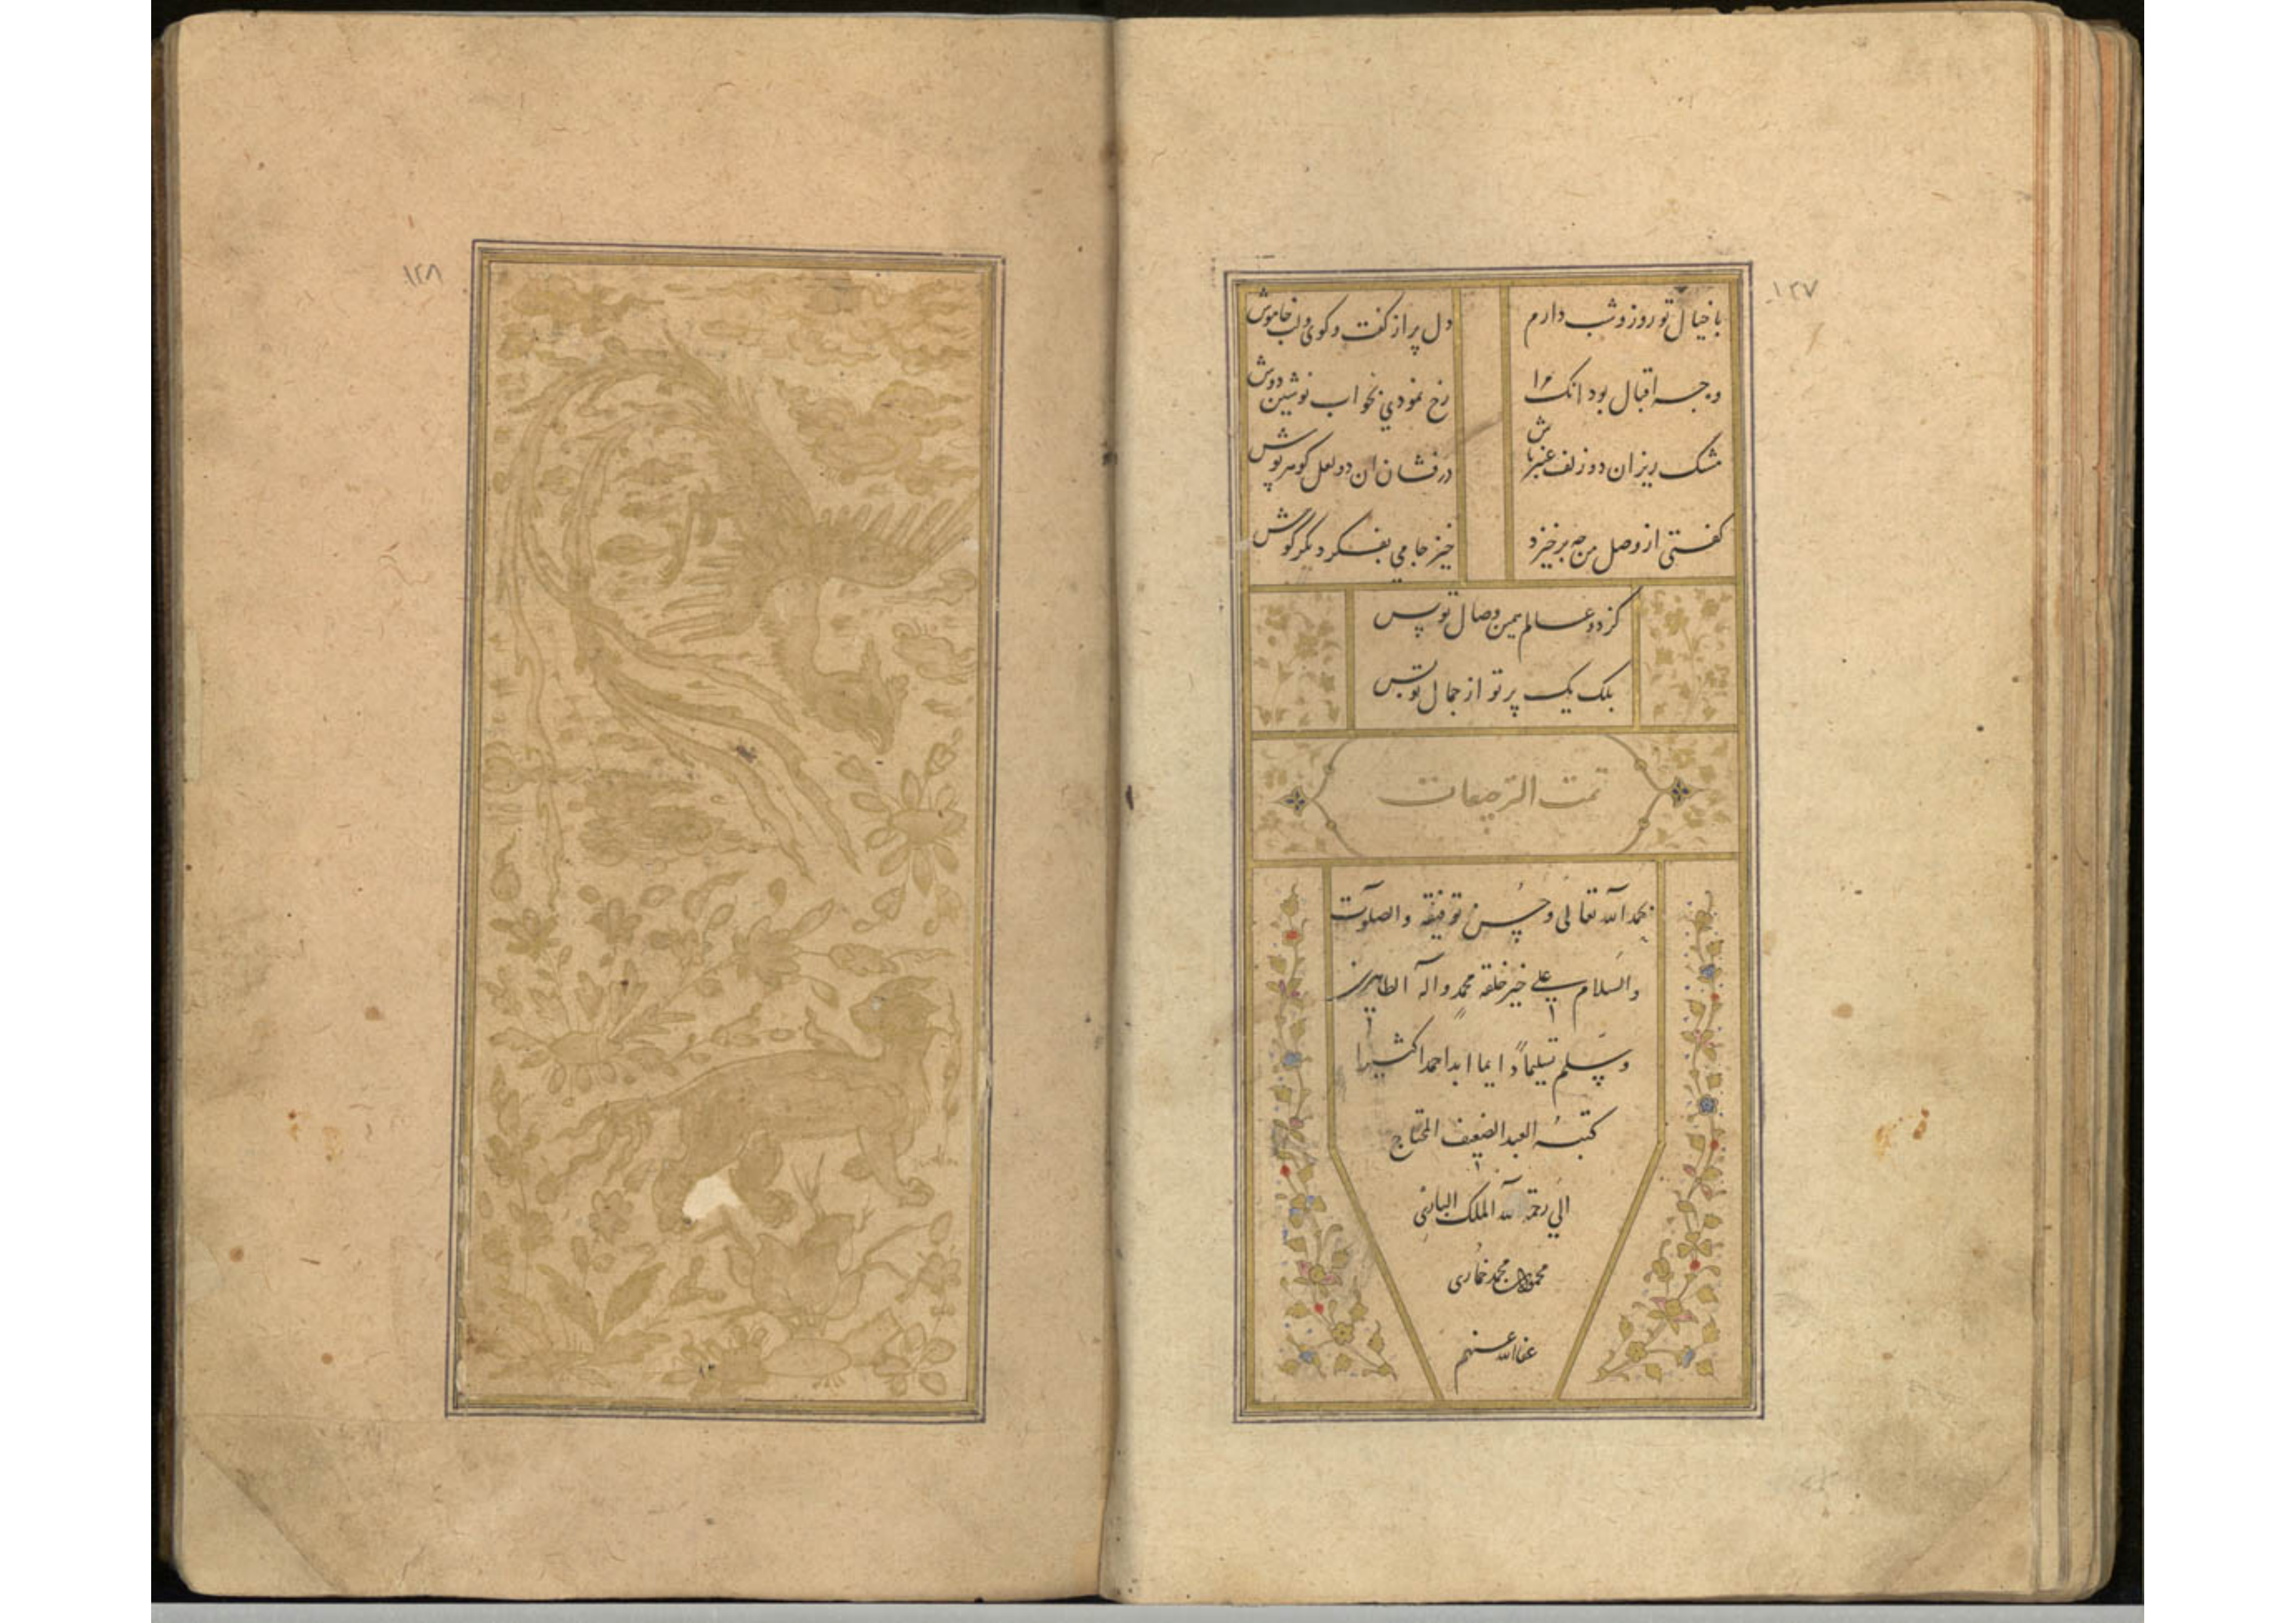 ۱۲۷
با خیال تو روز و شب دارم
دل پر از کفت و کوی و لب خاموش
وجه اقبال بود انک مرا
رخ نمودی بخواب نوشین دوش
مشک ریزان دو زلف عنبرپاش
در فشان ان دو لعل کوهرپوش
کفتی از وصل من چه برخیزد
خیز جامی بفکر دیکر کوش
کز دو عالم همین وصال تو بس
بلک یک پرتو از جمال تو بس
تمت الترجیعات
بحمد الله تعالی و حسن توفیقه والصلوت
والسلام علی خیر خلقه محمد و اله الطاهرین
وسلم تسلیما دایما ابدا کثیرا
کتبه العبد الضعیف المحتاج
الی رحمة الله الملک الباری
محمود بن محمد
عفا الله عنهم
۱۲۸